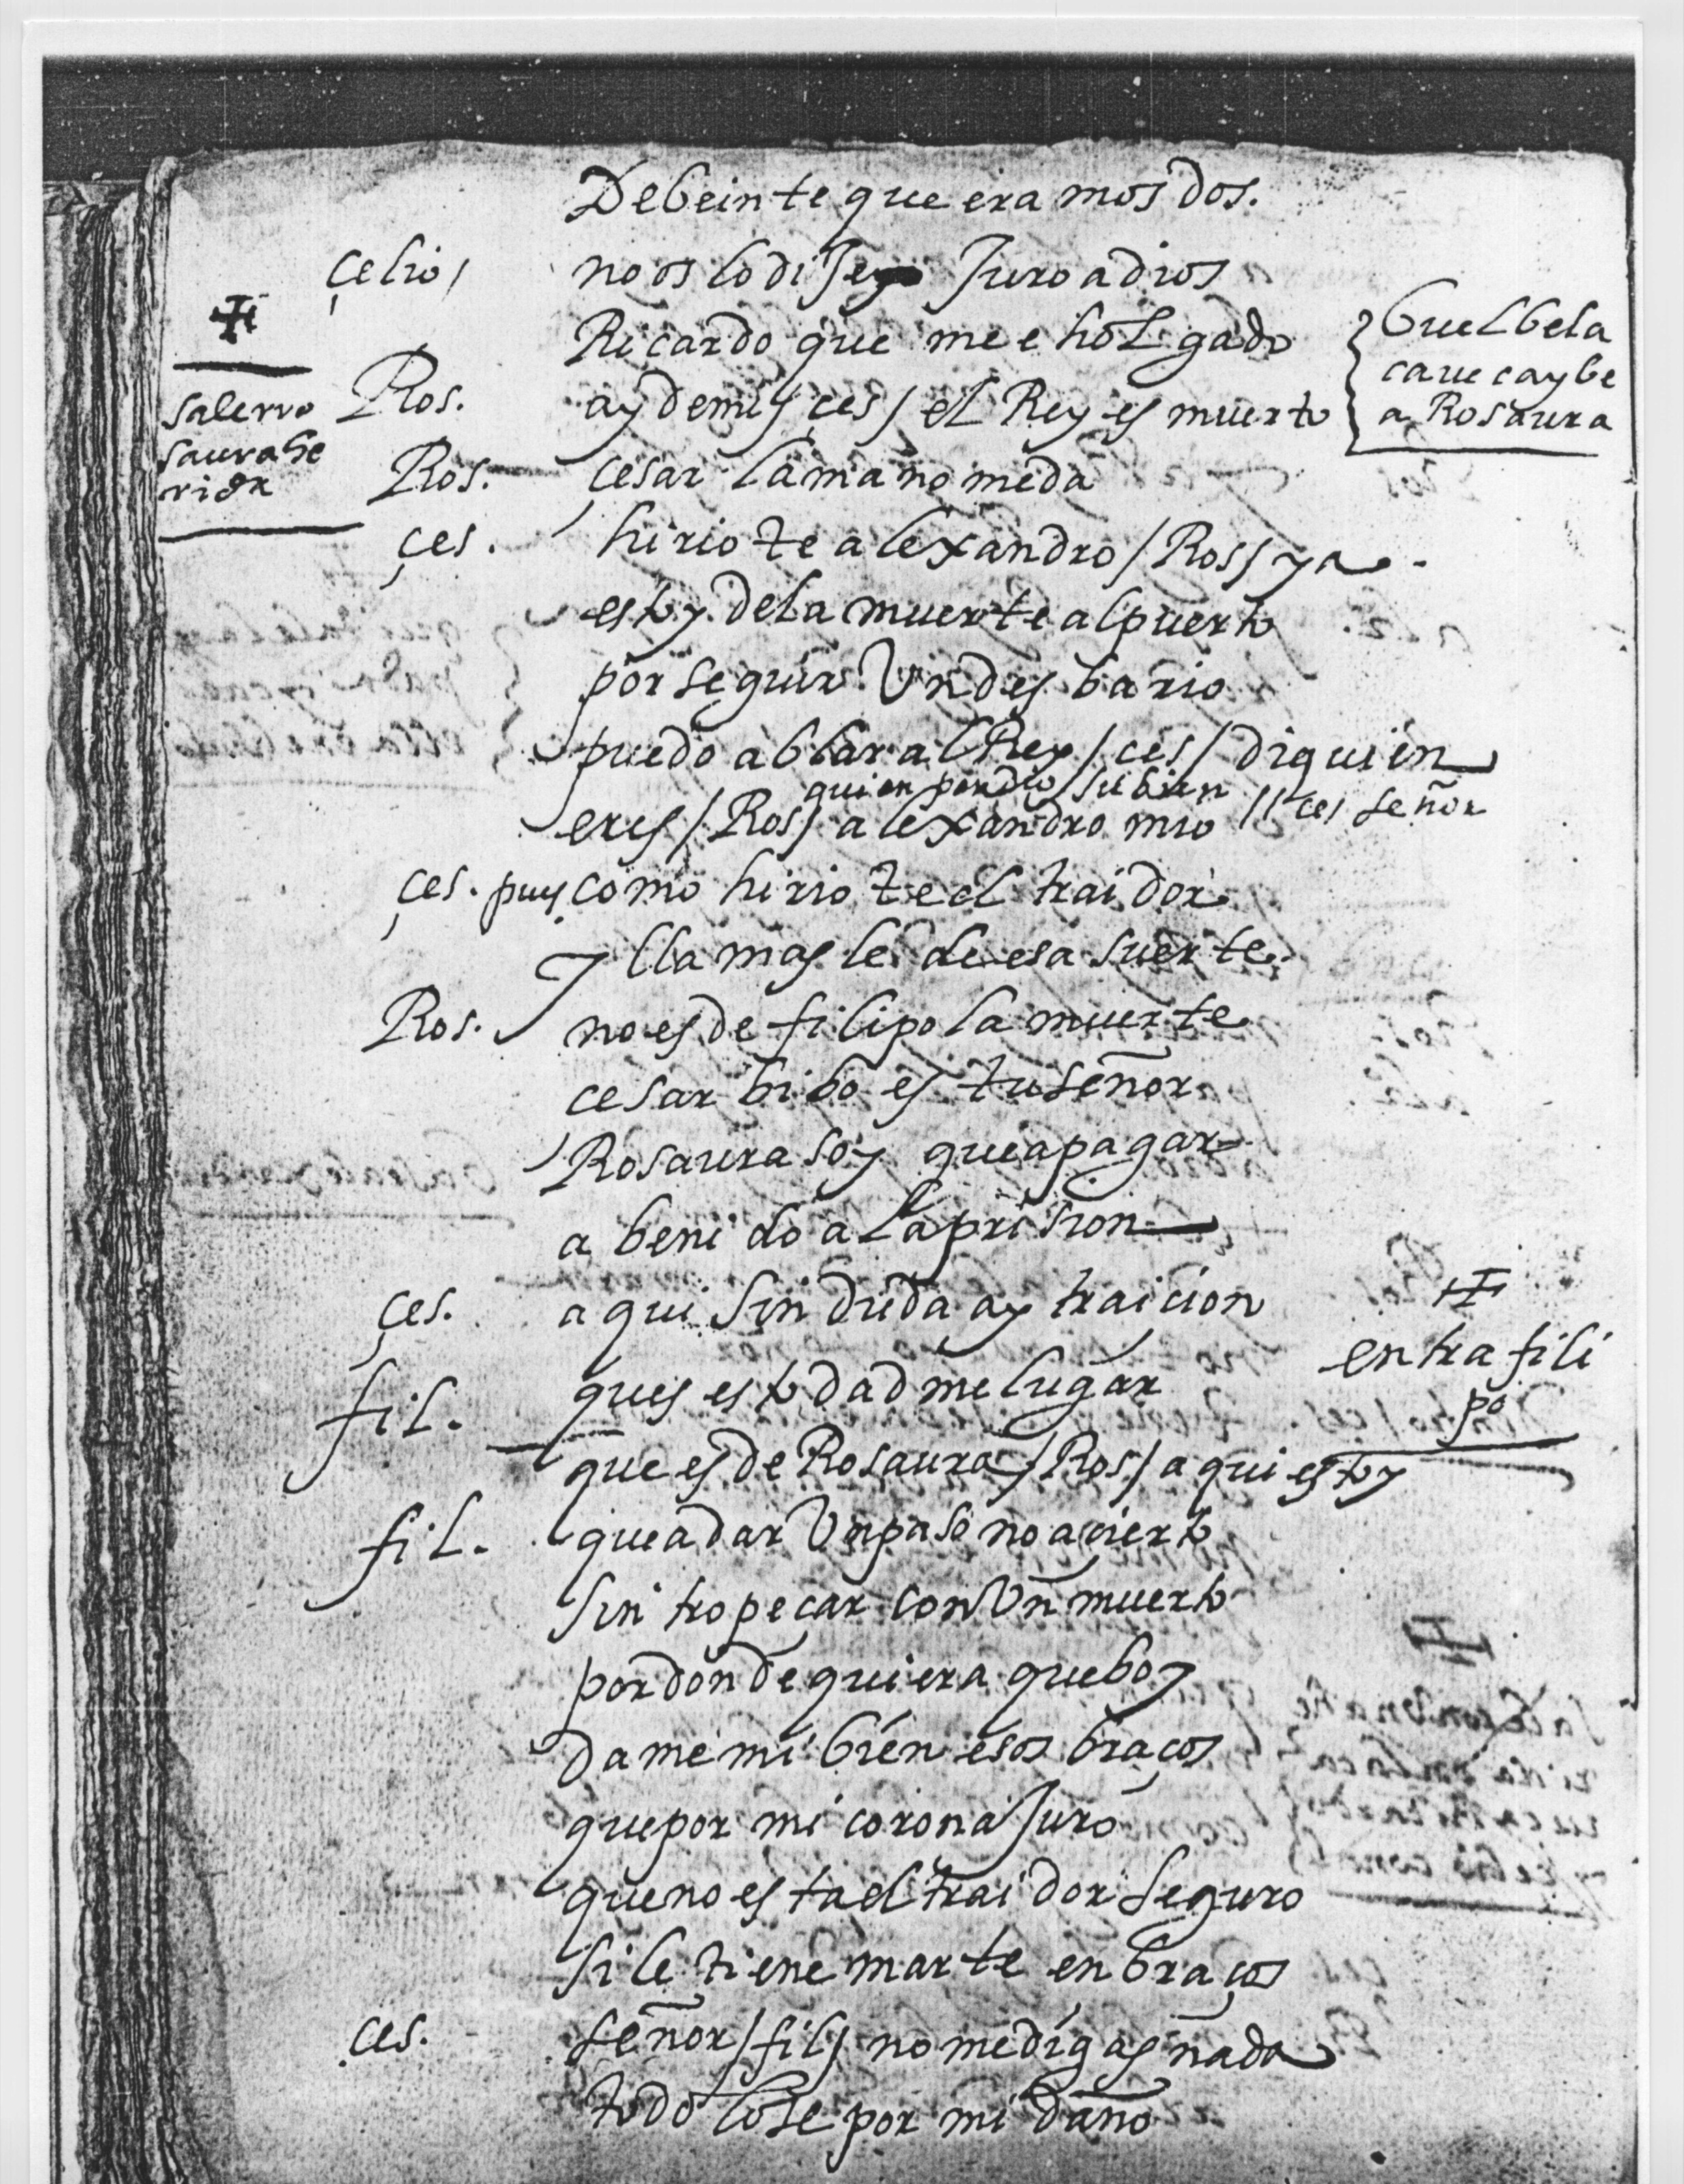 De beinte que eramos dos.
çelio / no os lo dije juro a dios
Ricardo que me e holgado
buelbe la
caueca y be
a Rosaura
sale rro
saura he
rida
Ros. ay de mi / ces / el Rey es muerto
Ros. cesar la mano me da
çes. hiriote alexandro / Ros / ya
estoy de la muerte al puerto
por seguir un desbario
puedo ablar al Rey / ces / di quien
quien perdio su bien
eres / Ros / alexandro mio // ces señor
çes. pues como hiriote el traidor
y llamasle de esa suerte
Ros. no es de filipo la muerte
cesar bibo es tu señor
Rosaura soy que a pagar
a benido a la prision
çes. aqui sin duda ay traicion
entra fili
po
fil. ques esto dadme lugar
que es de Rosaura / Ros / aqui estoy
fil. que a dar un paso no acierto
sin tropeçar con un muerto
por donde quiera que boy
dame mi bien esos braços
que por mi corona juro
que no esta el traidor seguro
si le tiene marte en braços
ces. señor / fil / no me digas nada
todo lo se por mi daño